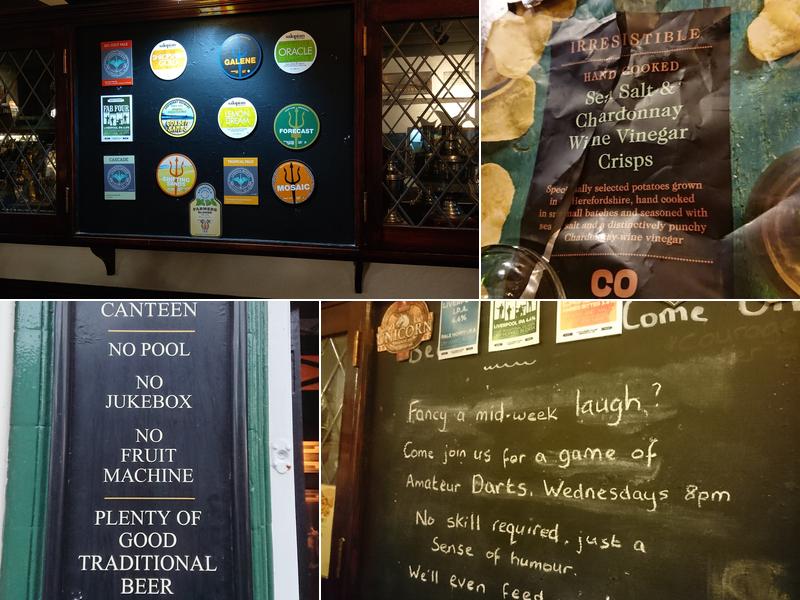 salopian
ORACLE
GALENE
FAB FOUR
LIVERPOOL IPA
salopian
LEMON
DREAM
FORECAST
CASCADE
SHIFTING
SANDS
TROPICAL PALE
MOSAIC
FARMERS
BLONDE
IRRESISTIBLE
HAND COOKED
Sea Salt &
Chardonnay
Wine Vinegar
Crisps
Specially selected potatoes grown
in Herefordshire, hand cooked
in small batches and seasoned with
sea salt and a distinctively punchy
Chardonnay wine vinegar
CO
CANTEEN
NO POOL
NO
JUKEBOX
NO
FRUIT
MACHINE
PLENTY OF
GOOD
TRADITIONAL
BEER
UNICORN
I.P.A.
LIVERPOOL IPA
Come On
Fancy a mid-week laugh?
Come join us for a game of
Amateur Darts. Wednesdays 8pm
No skill required, just a
Sense of humour.
We'll even feed